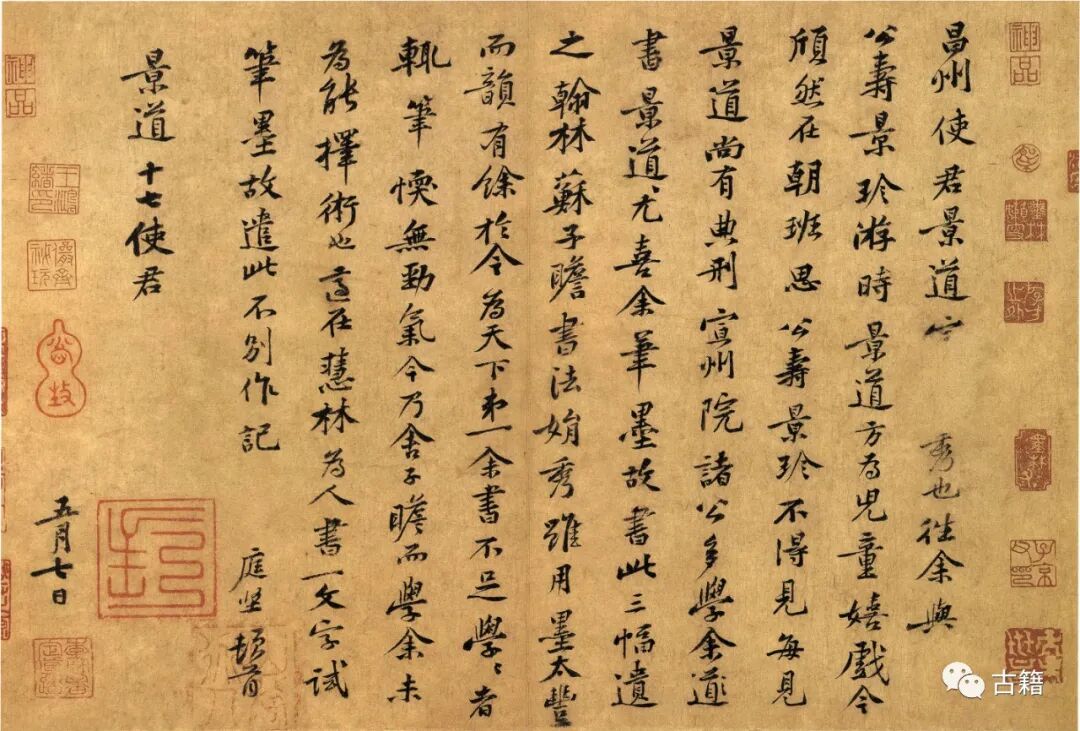 昌州使君景道宗秀也往余與
公壽景珍游時景道方為兒童嬉戲今
頎然在朝班思公壽景珍不得見每見
景道尚有典刑宣州院諸公多學余
書景道尤喜余筆墨故書此三幅遺
之翰林蘇子瞻書法娟秀雖用墨太豐
而韻有餘於今為天下第一余書不足學學者
輒筆愞無勁氣今乃舍子瞻而學余未
為能擇術也適在慧林為人書一文字試
筆墨故遣此不別作記
庭堅頓首
景道十七使君
五月七日
神品
神品
古籍